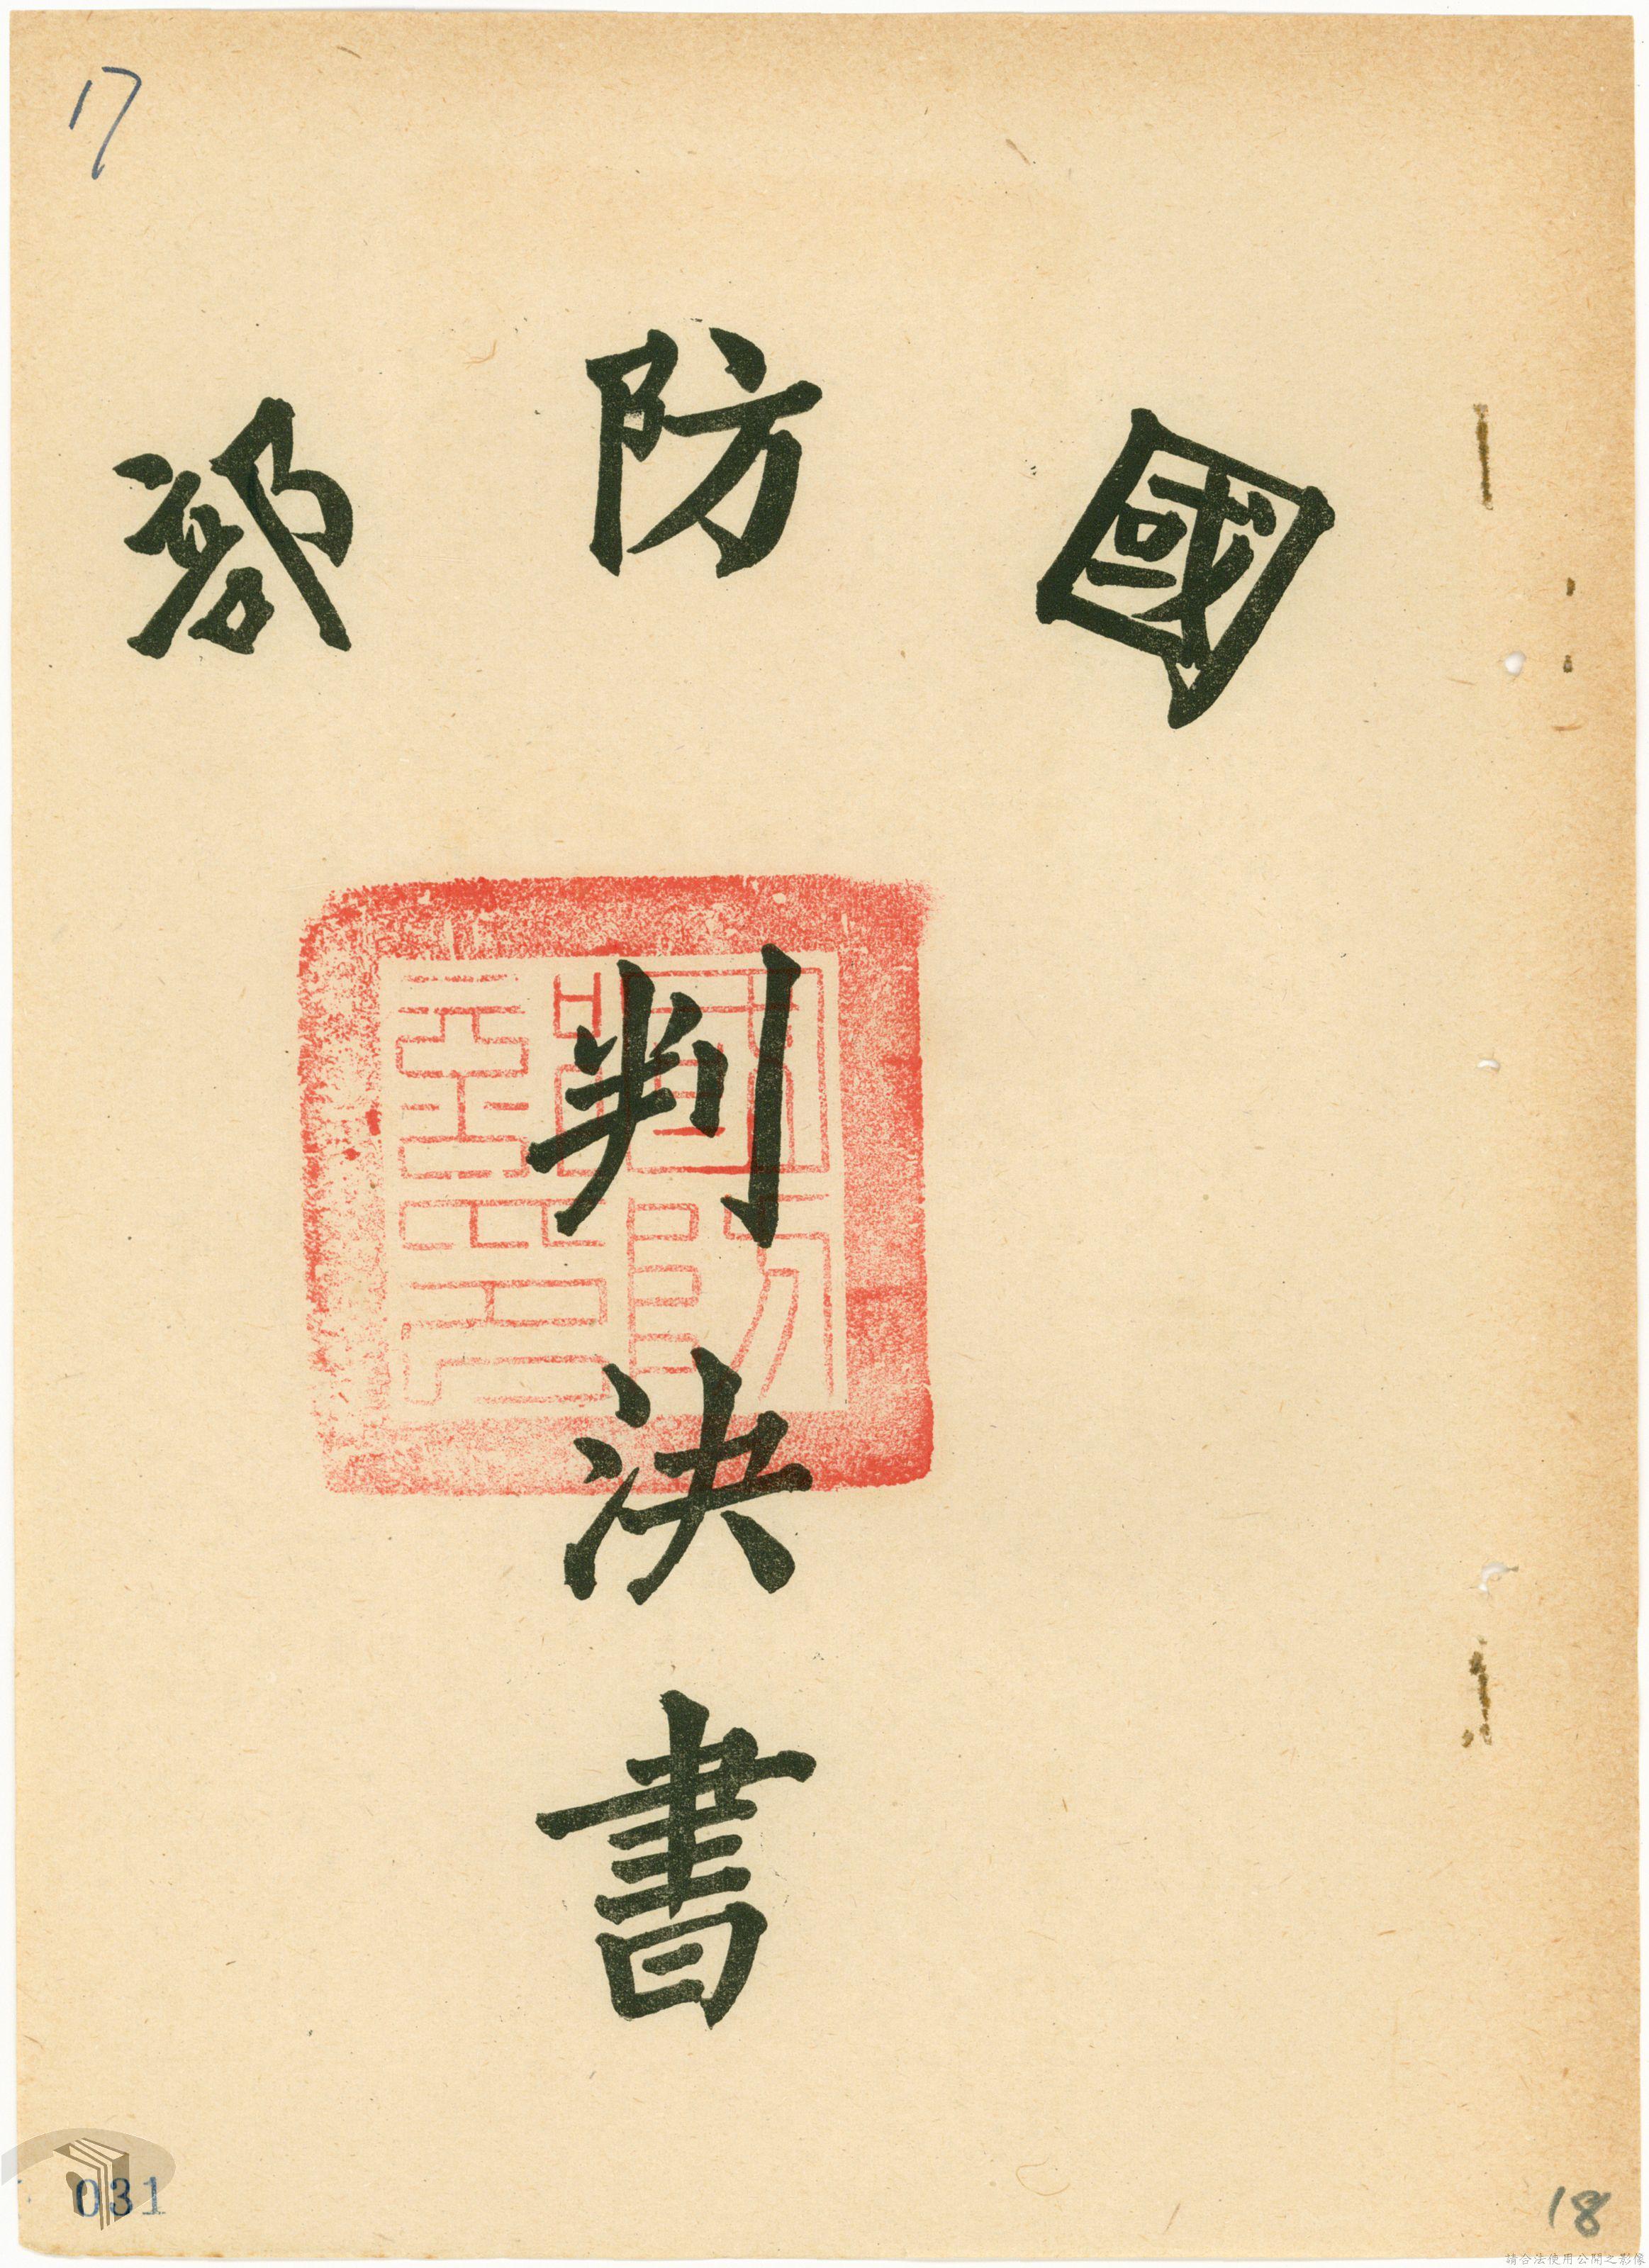 17
國防部
判決書
031
18
請合法使用公開之影像